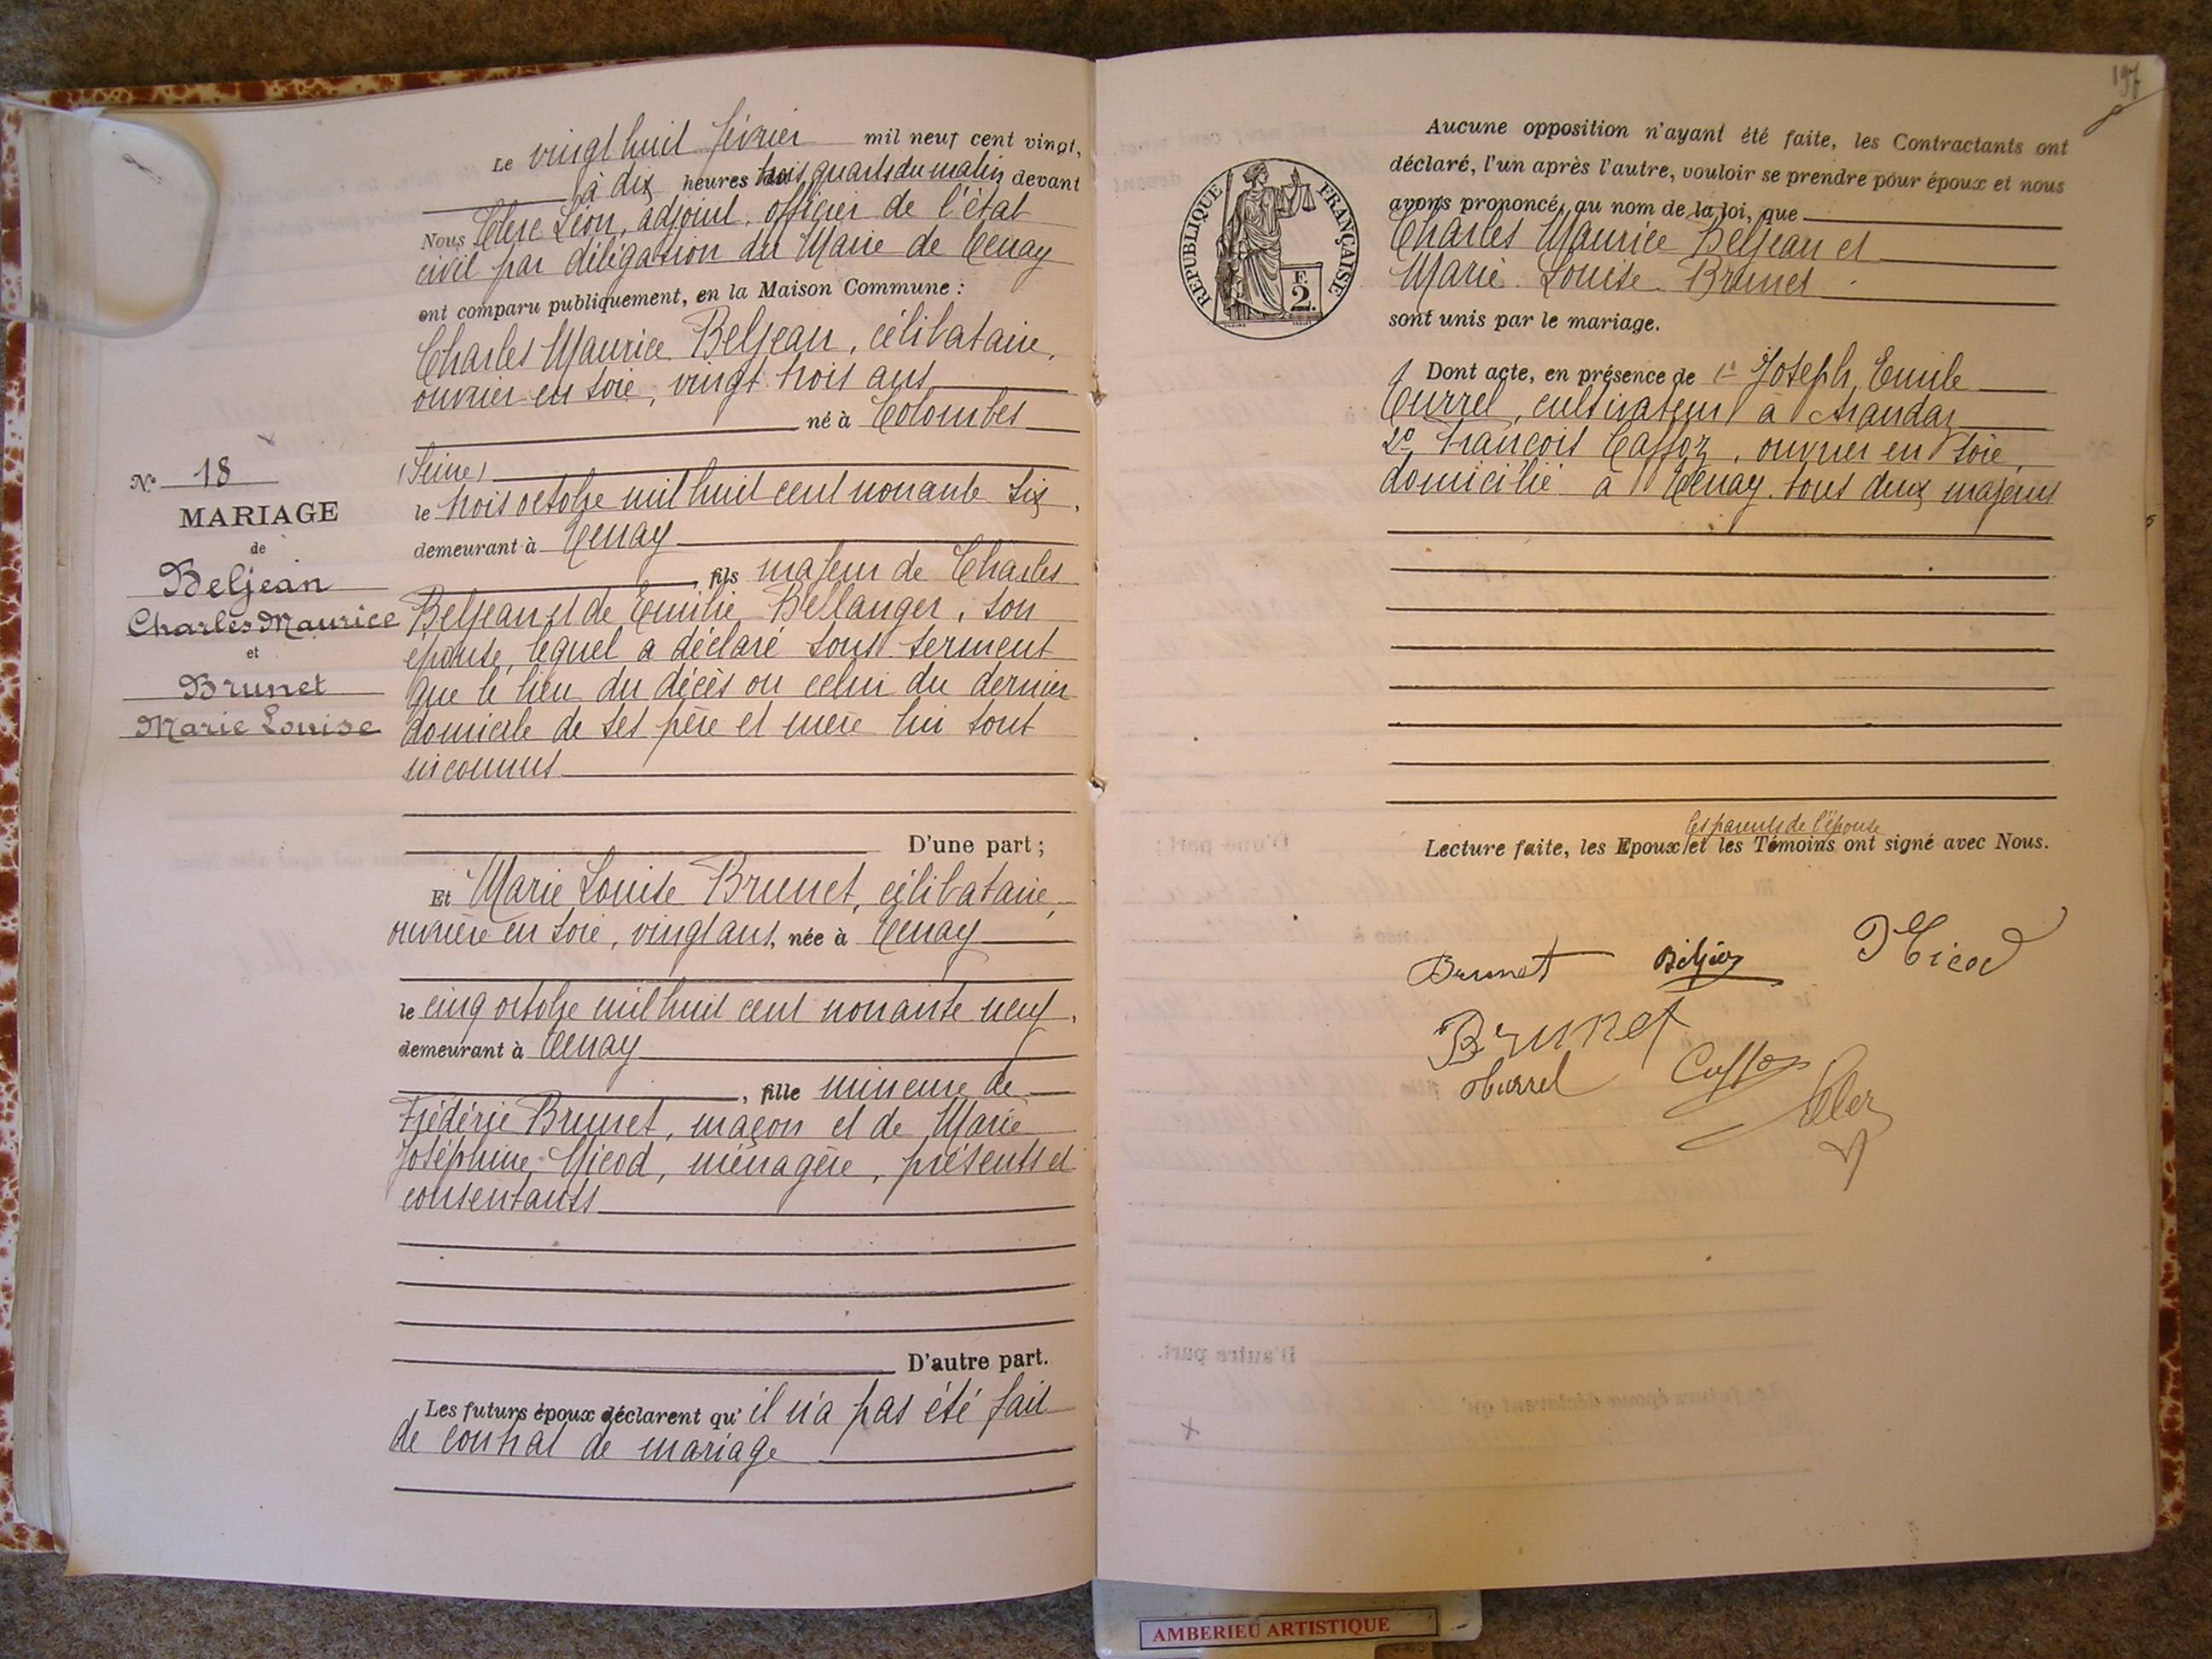 Le vingt huit février mil neuf cent vingt,
à dix heures trois quarts du matin devant
Nous Léon, adjoint, officier de l'état
civil par délégation du Maire de Tenay
ont comparu publiquement, en la Maison Commune :
Charles Maurice Beljean, célibataire,
ouvrier en soie, vingt trois ans
né à Colombes
(Seine)
le trois octobre mil huit cent nonante six,
demeurant à Tenay
, fils majeur de Charles
Beljean et de Emilie Bellanger, son
épouse, lequel a déclaré sous serment
que le lieu du décès ou celui du dernier
domicile de ses père et mère lui sont
inconnus
D'une part ;
Et Marie Louise Brunet, célibataire,
ouvrière en soie, vingt ans, née à Tenay
le cinq octobre mil huit cent nonante neuf,
demeurant à Tenay
, fille mineure de
Frédéric Brunet, maçon et de Marie
Joséphine Nicod, ménagère, présents et
consentants
D'autre part.
Les futurs époux déclarent qu' il n'a pas été fait
de contrat de mariage
No 18
MARIAGE
de
Beljean
Charles Maurice
et
Brunet
Marie Louise
197
REPUBLIQUE FRANÇAISE
F.
2.
Aucune opposition n'ayant été faite, les Contractants ont
déclaré, l'un après l'autre, vouloir se prendre pour époux et nous
avons prononcé, au nom de la loi, que
Charles Maurice Beljean et
Marie Louise Brunet
sont unis par le mariage.
Dont acte, en présence de 1° Joseph, Emile
Turrel, cultivateur à Arandas
2° François Caffoz, ouvrier en soie,
domicilié à Tenay tous deux majeurs
les parents de l'épouse
Lecture faite, les Epoux et les Témoins ont signé avec Nous.
Brunet Beljean Nicod
Brunet
Turrel
AMBERIEU ARTISTIQUE